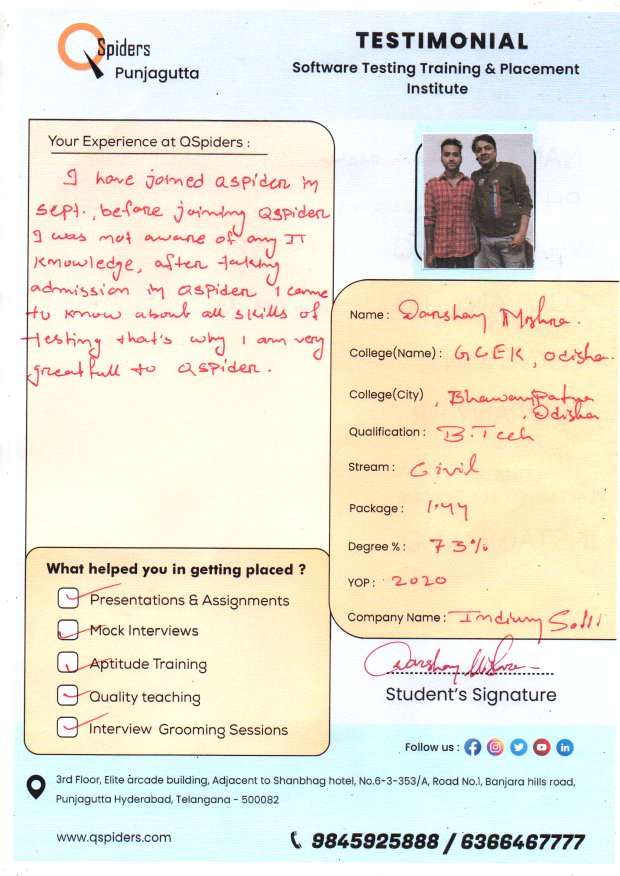 QSpiders
Punjagutta
TESTIMONIAL
Software Testing Training & Placement
Institute
Your Experience at QSpiders :
I have joined QSpider in
sept., before joining QSpider
I was not aware of any IT
knowledge, after taking
admission in QSpider I came
to know about all skills of
testing that's why I am very
greatfull to QSpider.
Name : Darshan Mishra.
College(Name) : GCEK, Odisha.
College(City) , Bhawanipatna
, Odisha
Qualification : B.Tech
Stream : Civil
Package : 1.44
Degree % : 73%
YOP : 2020
Company Name : Indium Soft
What helped you in getting placed ?
Presentations & Assignments
Mock Interviews
Aptitude Training
Quality teaching
Interview Grooming Sessions
Darshan Mishra
Student's Signature
Follow us :
3rd Floor, Elite arcade building, Adjacent to Shanbhag hotel, No.6-3-353/A, Road No.1, Banjara hills road,
Punjagutta Hyderabad, Telangana - 500082
www.qspiders.com
9845925888 / 6366467777